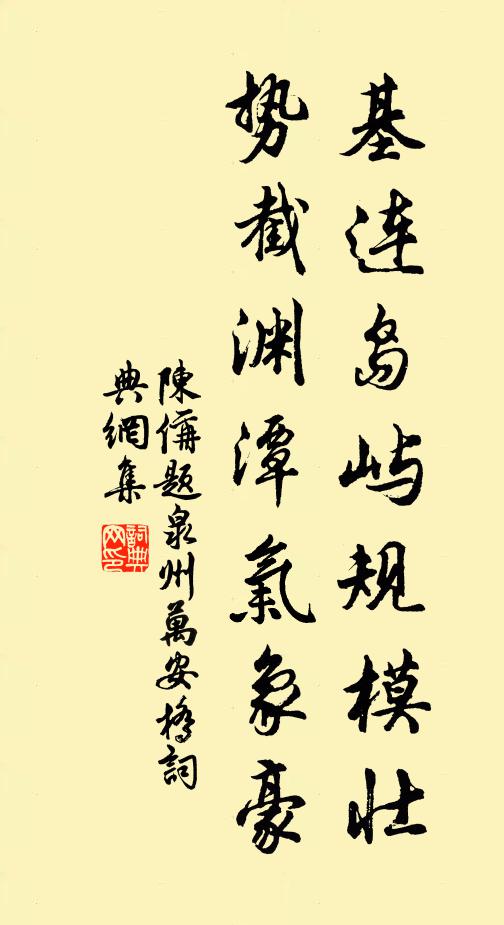 基连岛屿规模壮
势截渊潭氣象豪
陳偁题泉州萬安橋詞
典網集
詞典
网印